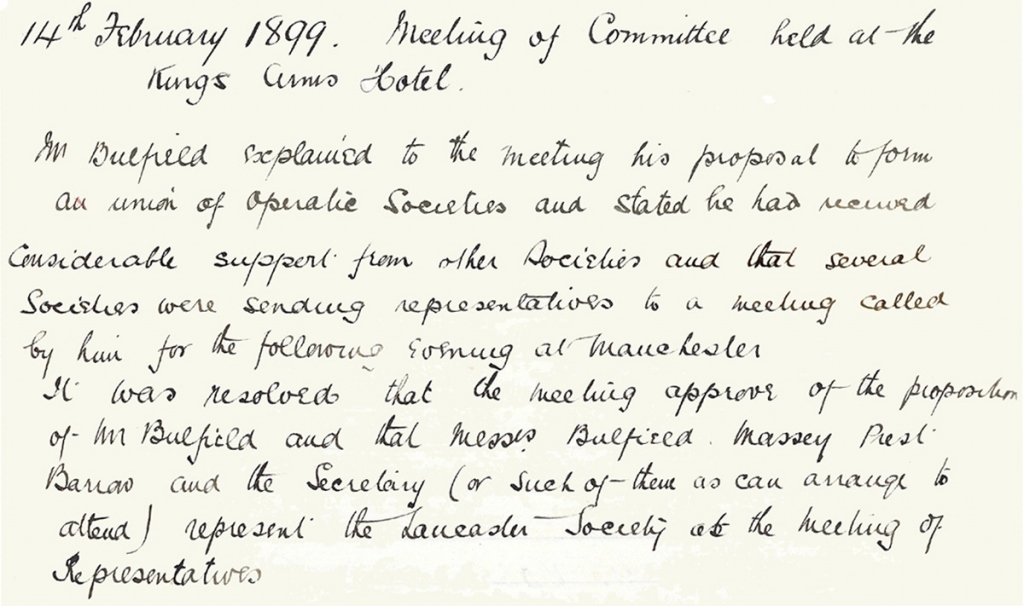 14th February 1899. Meeting of Committee held at the
Kings Arms Hotel.
Mr Bulfield explained to the meeting his proposal to form
an union of Operatic Societies and stated he had received
Considerable support from other Societies and that several
Societies were sending representatives to a meeting called
by him for the following evening at Manchester
It was resolved that the meeting approve of the proposition
of Mr Bulfield and that Messrs Bulfield. Massey Prest
Barrow and the Secretary (or such of them as can arrange to
attend) represent the Lancaster Society at the meeting of
Representatives